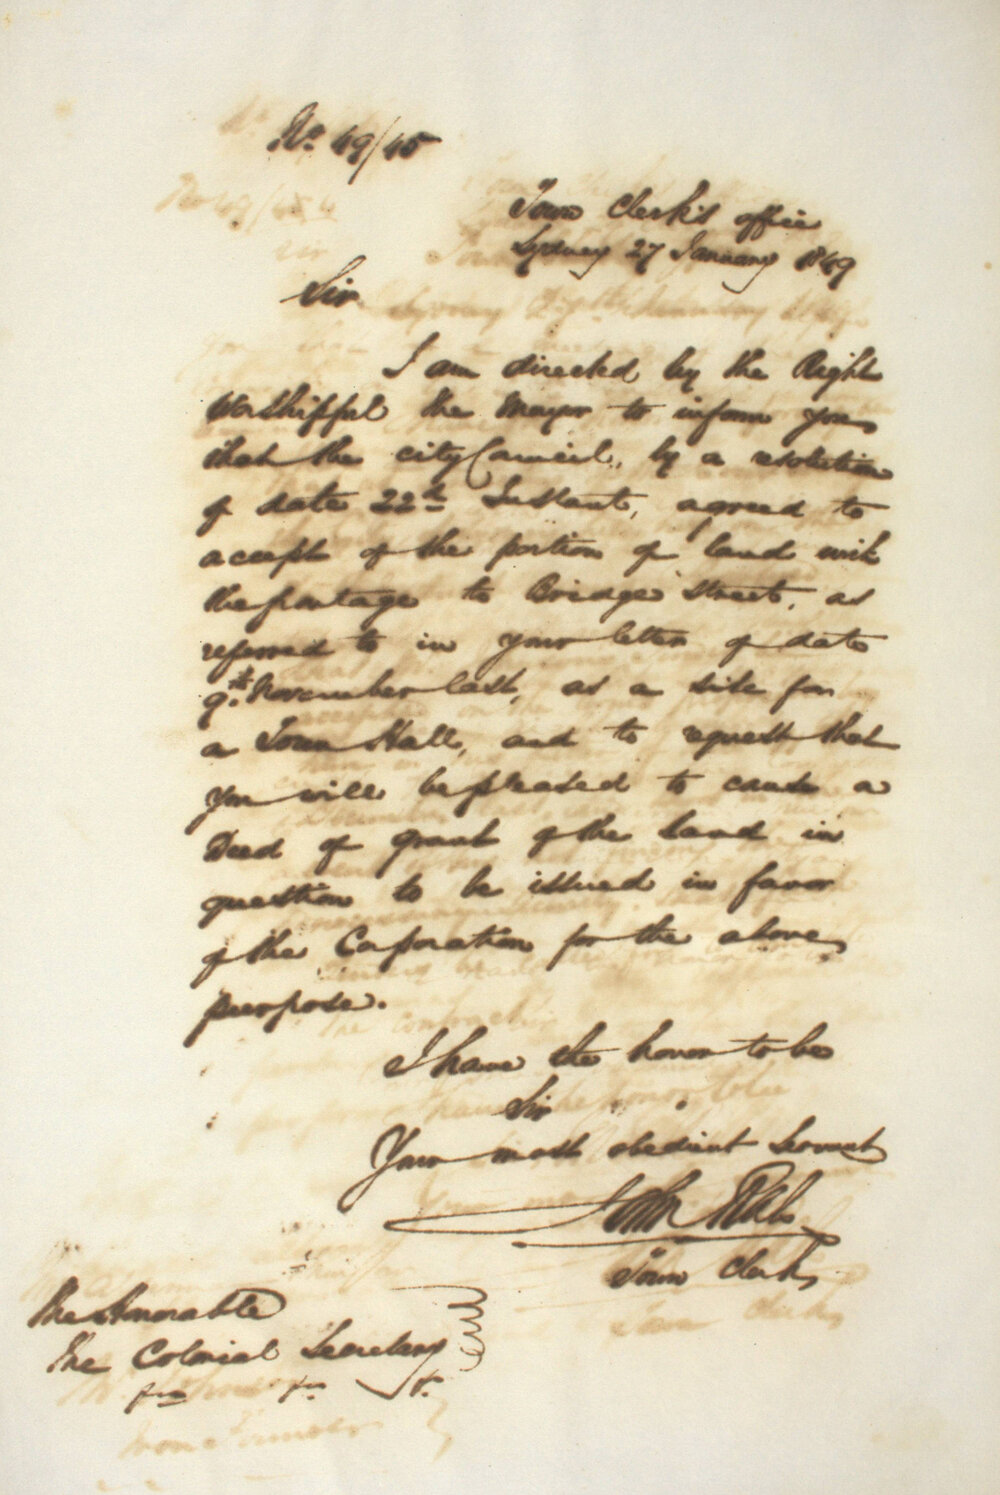 No. 49/45
Town Clerk's office
Sydney 27 January 1849
Sir
I am directed by the Right
Worshipful the Mayor to inform you
that the city Council, by a resolution
of date 22d Instant, agreed to
accept of the portion of land with
the frontage to Bridge Street, as
referred to in your letter of date
9th. November last, as a site for
a Town Hall, and to request that
you will be pleased to cause a
Deed of grant of the land in
question to be issued in favor
of the Corporation for the above
purpose.
I have the honor to be
Sir
Your most obedient Servant
John
Town Clerk
The Honorable
The Colonial Secretary